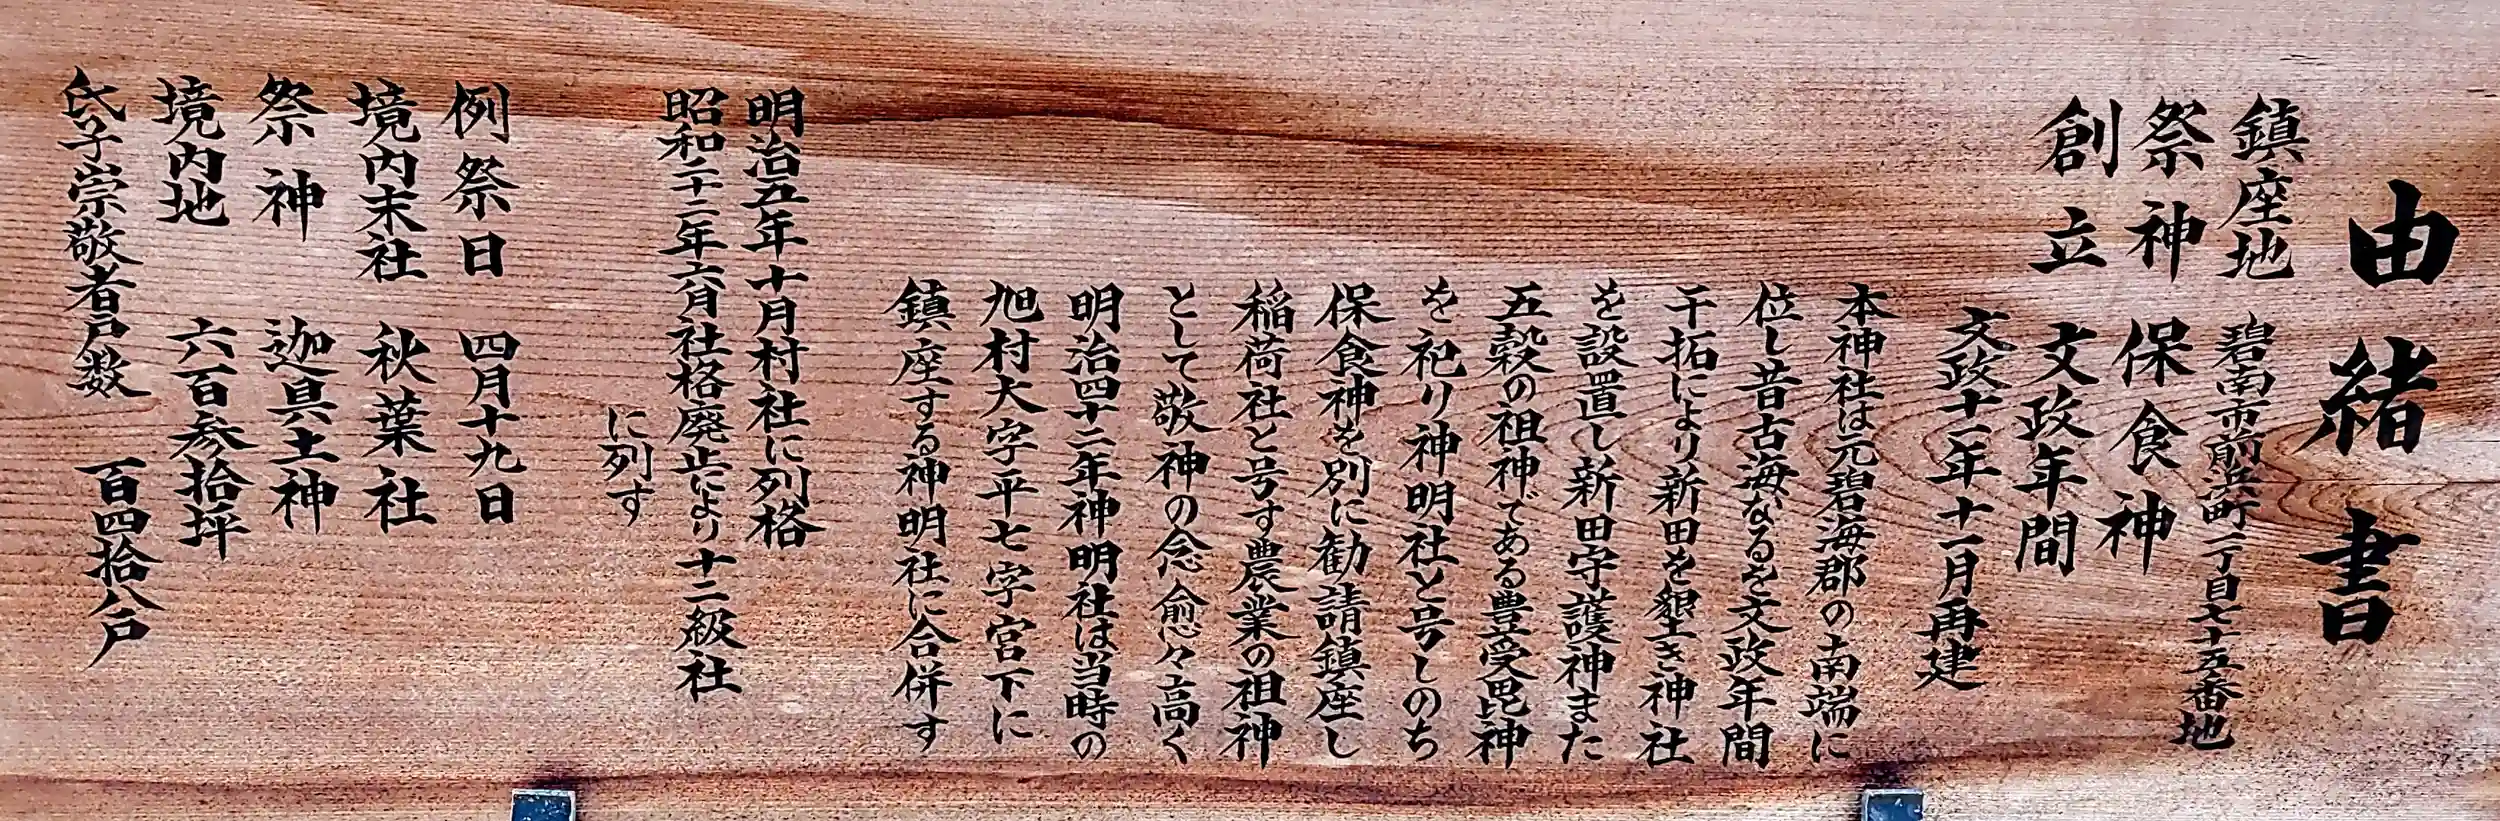 由緒書
鎮座地 碧南市前浜町二丁目七十五番地
祭神 保食神
創立 文政年間
文政十二年十一月再建
本神社は元碧海郡の南端に
位し昔古海なるを文政年間
干拓により新田を墾き神社
を設置し新田守護神また
五穀の祖神である豊受毘神
を祀り神明社と号しのち
保食神を別に勧請鎮座し
稲荷社と号す農業の祖神
として敬神の念愈々高く
明治四十二年神明社は当時の
旭村大字平七字宮下に
鎮座する神明社に合併す
明治五年十月村社に列格
昭和二十二年六月社格廃止により十二級社
に列す
例祭日 四月十九日
境内末社 秋葉社
祭神 迦具土神
境内地 六百参拾坪
氏子崇敬者戸数 百四拾八戸